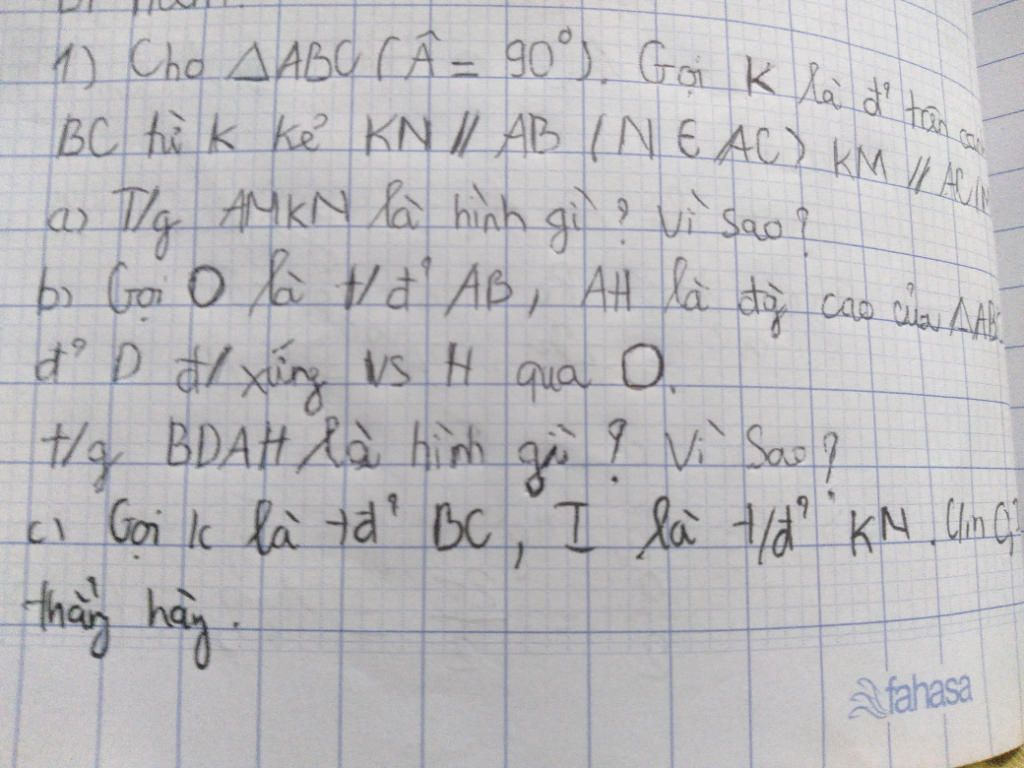 1) Cho ΔABC (Â = 90°). Gọi K là đ' trên cạnh
BC từ K kẻ KN // AB (N ∈ AC) KM // AC
a) T/g AMKN là hình gì? Vì sao?
b) Gọi O là t/đ' AB, AH là đg cao của ΔABC
đ' D đ/xứng vs H qua O.
t/g BDAH là hình gì? Vì sao?
c) Gọi K là tđ' BC, I là t/đ' KN.
thẳg hàg.
fahasa